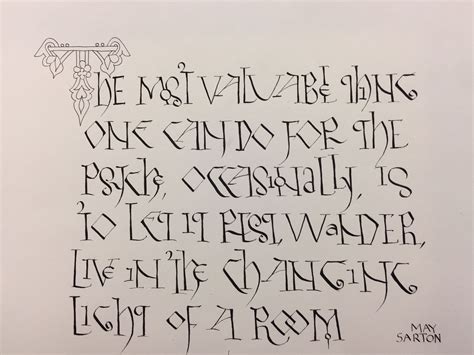 THE MOST VALUABLE THING
ONE CAN DO FOR THE
PSYCHE, OCCASIONALLY, IS
TO LET IT REST, WANDER,
LIVE IN THE CHANGING
LIGHT OF A ROOM
MAY
SARTON